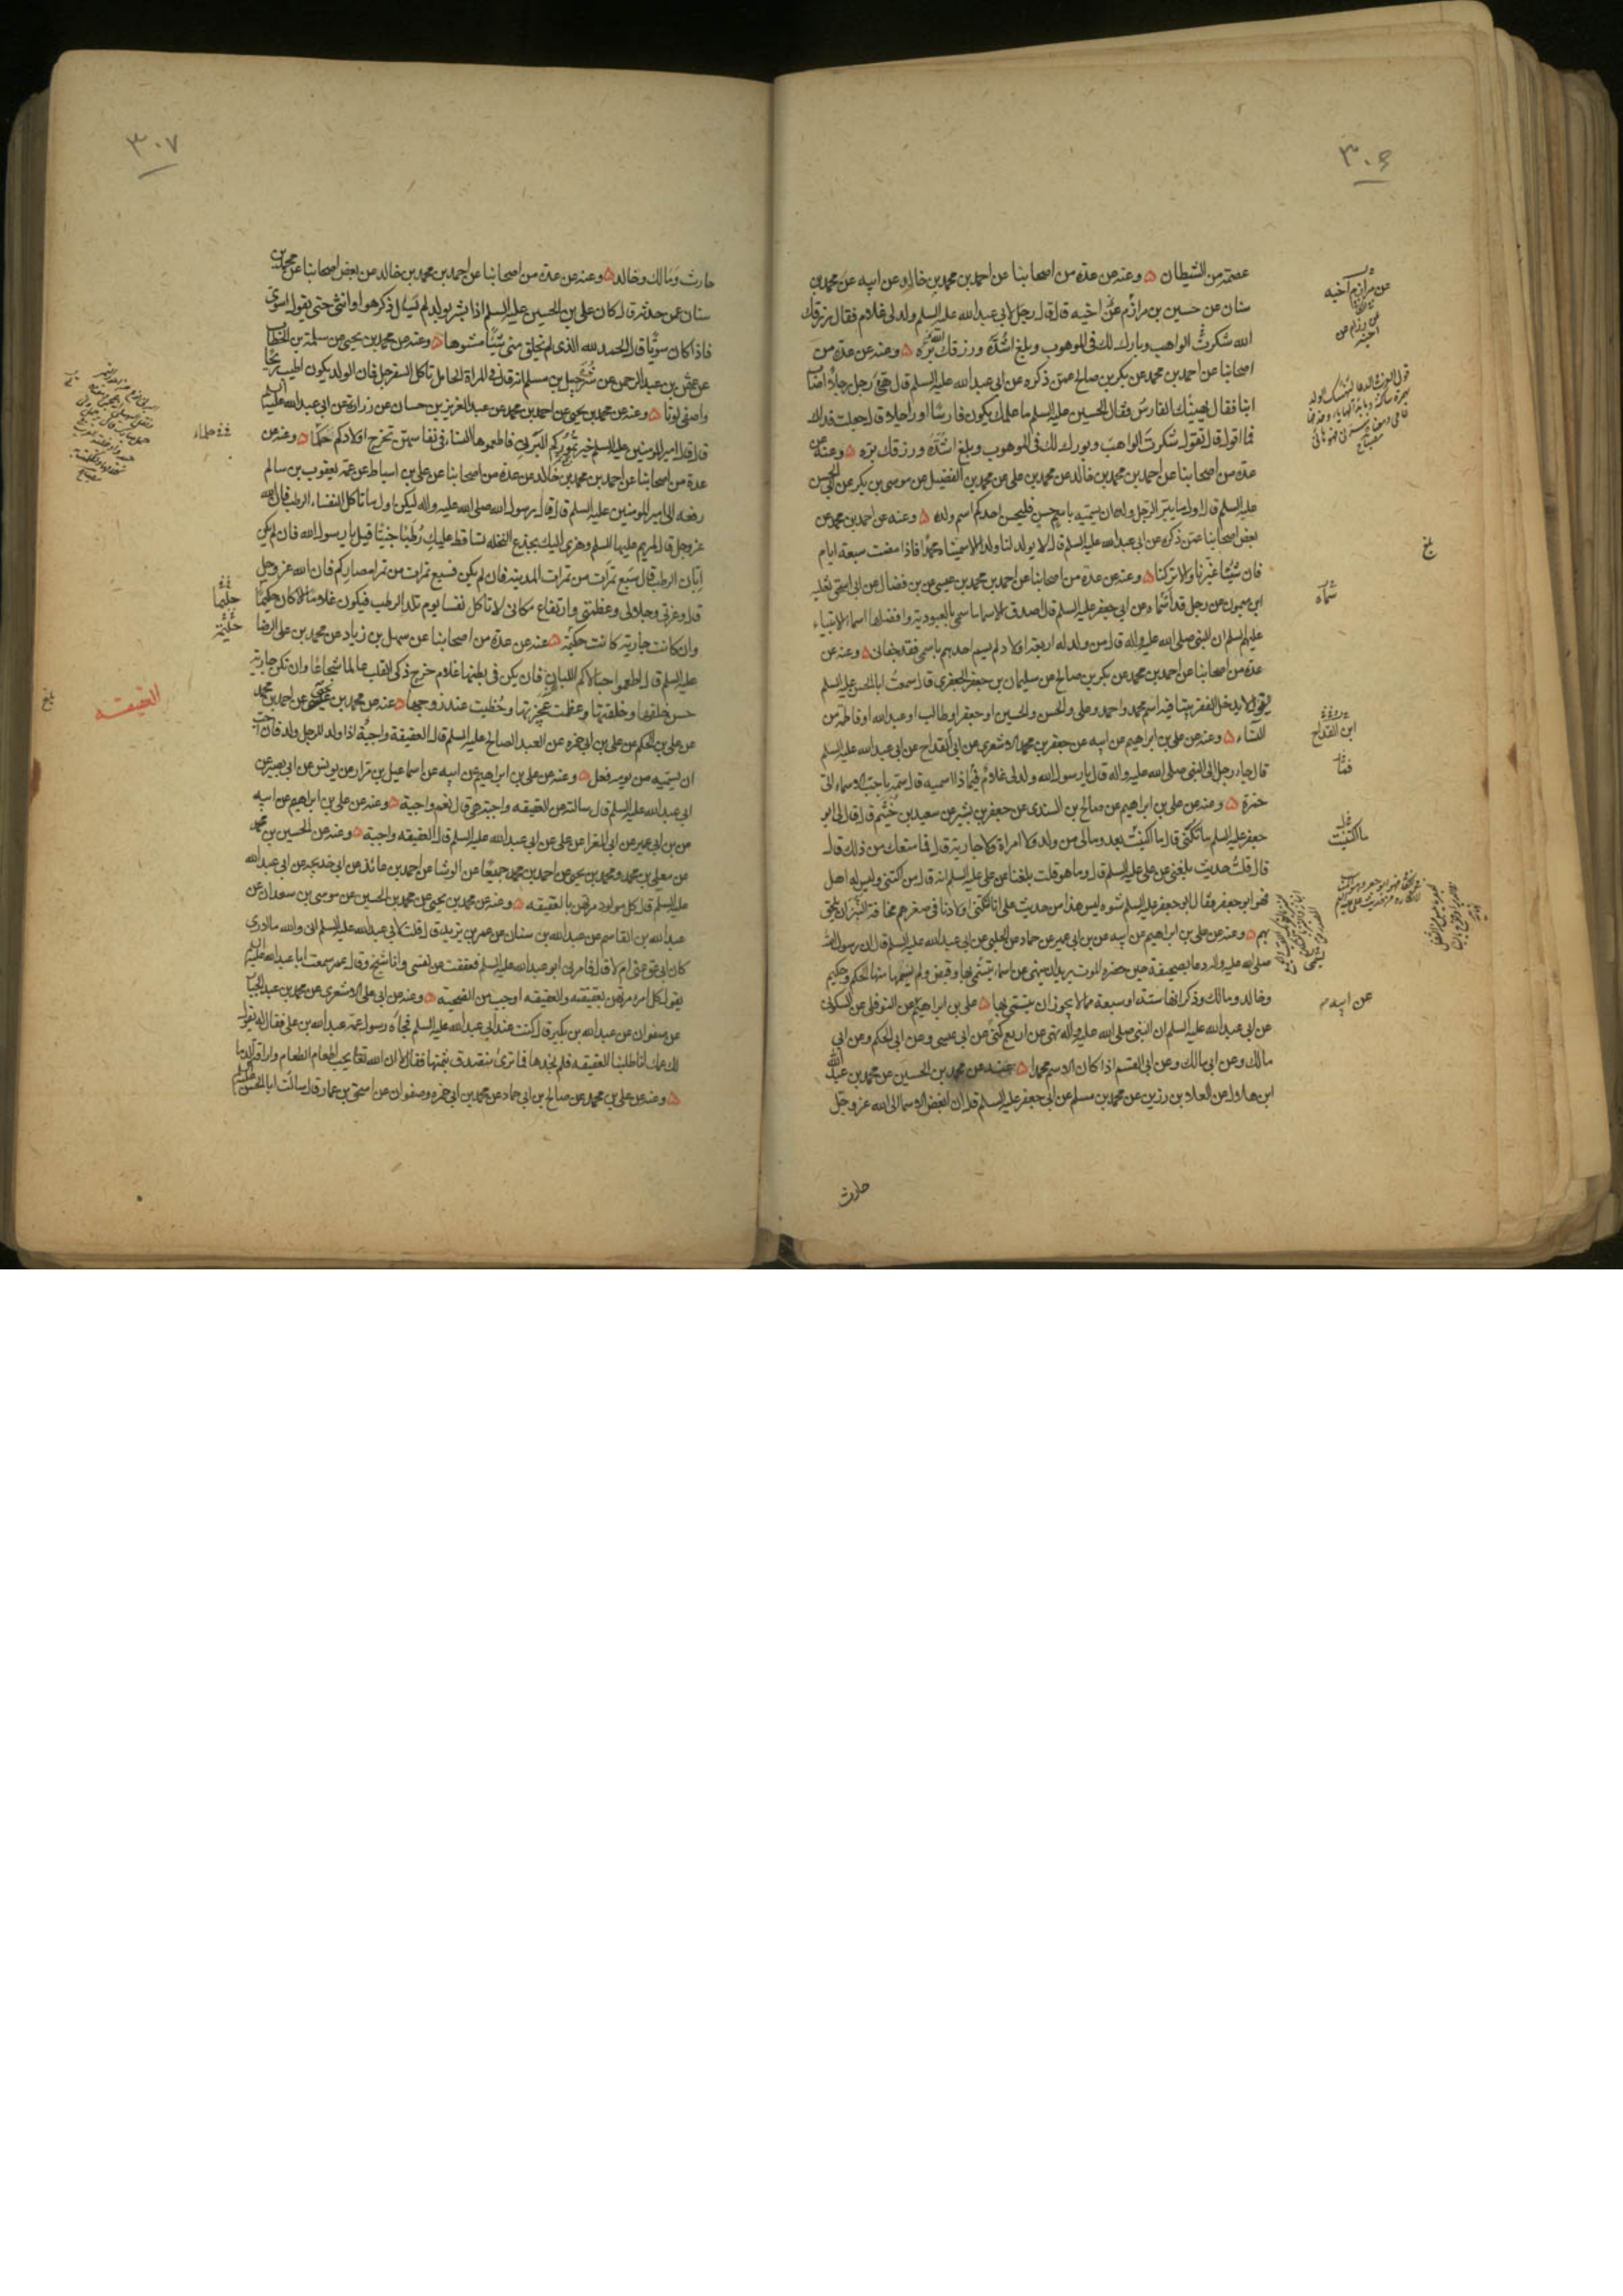 ٣٠۶
عصمة من الشيطان ۵ وعنه عن عدة من اصحابنا عن احمد بن محمد بن خالد عن ابيه عن محمد بن
سنان عن حسين بن مرازم عن اخيه قال قال رجل لابي عبد الله عليه السلم ولد لي غلام فقال رزقك
الله شكر الواهب وبارك لك في الموهوب وبلغ اشده ورزقك الله بره ۵ وعنه عن عدة من
اصحابنا عن احمد بن محمد عن بكر بن صالح عمن ذكره عن ابي عبد الله عليه السلم قال هنئ رجل رجلا اصاب
ابنا فقال يهنيك الفارس فقال الحسين عليه السلم ما علمك يكون فارسا او راجلا قال جعلت فداك
فما اقول قال تقول شكرت الواهب وبورك لك في الموهوب وبلغ اشده ورزقك بره ۵ وعنه عن
عدة من اصحابنا عن احمد بن محمد بن خالد عن محمد بن علي عن محمد بن الفضيل عن موسى بن بكر عن ابي الحسن
عليه السلم قال اول ما يبر الرجل ولده ان يسميه باسم حسن فليحسن احدكم اسم ولده ۵ وعنه عن احمد بن محمد عن
بعض اصحابنا عمن ذكره عن ابي عبد الله عليه السلم قال لا يولد لنا ولد الا سميناه محمدا فاذا مضت سبعة ايام
فان شئنا غيرنا والا تركنا ۵ وعنه عن عدة من اصحابنا عن احمد بن محمد بن عيسى عن بن فضال عن ابي اسحق ثعلبة
ابن ميمون عن رجل قد اسماه عن ابي جعفر عليه السلم قال اصدق الاسما ما سمي بالعبودية وافضلها اسماء الانبياء
عليهم السلم ان النبي صلى الله عليه واله قال من ولد له اربعة اولاد لم يسم احدهم باسمي فقد جفاني ۵ وعنه عن
عدة من اصحابنا عن احمد بن محمد عن بكر بن صالح عن سليمان بن جعفر الجعفري قال سمعت ابا الحسن عليه السلم
يقول لا يدخل الفقر بيتا فيه اسم محمد واحمد وعلي والحسن والحسين او جعفر او طالب او عبد الله او فاطمة من
النساء ۵ وعنه عن علي بن ابراهيم عن ابيه عن جعفر بن محمد الاشعري عن ابن القداح عن ابي عبد الله عليه السلم
قال جاء رجل الى النبي صلى الله عليه واله قال يا رسول الله ولد لي غلام فماذا اسميه قال سمه باحب الاسماء الي
حمزة ۵ وعنه عن علي بن ابراهيم عن صالح بن السندي عن جعفر بن بشير عن سعيد بن خثيم قال قال لي ابو
جعفر عليه السلم ما تكنى قال ما اكتنيت بعد ومالي من ولد ولا امراة ولا جارية قال فما منعك من ذلك قال
قال قلت حديث بلغني عن علي عليه السلم قال وما هو قلت بلغنا عن علي عليه السلم انه قال من اكتنى وليس له اهل
فهو ابو جعفر فقال ابو جعفر عليه السلم شوه ليس هذا من حديث علي انا لنكني اولادنا في صغرهم مخافة النبز ان يلحق
بهم ۵ وعنه عن علي بن ابراهيم عن ابيه عن بن ابي عمير عن حماد عن الحلبي عن ابي عبد الله عليه السلم قال ان رسول الله
صلى الله عليه واله دعا بصحيفة حين حضره الموت يريد ان ينهى عن اسماء يتسمى بها وقبض ولم يسمها منها الحكم وحكيم
وخالد ومالك وذكر انها ستة او سبعة مما لا يجوز ان يتسمى بها ۵ علي بن ابراهيم عن النوفلي عن السكوني
عن ابي عبد الله عليه السلم ان النبي صلى الله عليه واله نهى عن اربع كنى عن ابي عيسى وعن ابي الحكم وعن ابي
مالك وعن ابي القسم اذا كان الاسم محمدا ۵ عنه عن محمد بن الحسين عن محمد بن عبد الله
ابن هلال عن العلاء بن رزين عن محمد بن مسلم عن ابي جعفر عليه السلم قال ان ابغض الاسما الى الله عز وجل
حارث
عن مرازم اخيه
بلغ
سماه
ابن القداح
ما اكتنيت
عن ابيه
٣٠٧
حارث ومالك وخالد ۵ وعنه عن عدة من اصحابنا عن احمد بن محمد بن خالد عن بعض اصحابنا عن محمد بن
سنان عمن حدثه قال كان علي بن الحسين عليه السلم اذا بشر بولد لم يسال اذكر هو او انثى حتى يقول اسوي
فاذا كان سويا قال الحمد لله الذي لم يخلق مني شيئا مشوها ۵ وعنه عن محمد بن يحيى عن سلمة بن الخطاب
عن عثمن بن عبد الرحمن عن شرحبيل بن مسلم انه قال في المراة الحامل تاكل السفرجل فان الولد يكون اطيب ريحا
واصفى لونا ۵ وعنه عن محمد بن يحيى عن احمد بن محمد عن عبد العزيز بن حسان عن زرارة عن ابي عبد الله عليه السلم
قال قال امير المومنين عليه السلم خير تموركم البرني فاطعموها للنساء في نفاسهن تخرج اولادكم حكما ۵ وعنه عن
عدة من اصحابنا عن احمد بن محمد بن خالد عن عدة من اصحابنا عن علي بن اسباط عن عمه يعقوب بن سالم
رفعه الى امير المومنين عليه السلم قال قال رسول الله صلى الله عليه واله ليكن اول ما تاكل النفساء الرطب قال الله
عز وجل قال لمريم عليها السلم وهزي اليك بجذع النخلة تساقط عليك رطبا جنيا قيل يا رسول الله فان لم يكن
ابان الرطب قال سبع تمرات من تمرات المدينة فان لم يكن فسبع تمرات من تمر امصاركم فان الله عز وجل
قال وعزتي وجلالي وعظمتي وارتفاع مكاني لا تاكل نفسا يوم تلد الرطب فيكون غلاما الا كان حكيما
وان كانت جارية كانت حكيمة ۵ عنه عن عدة من اصحابنا عن سهل بن زياد عن محمد بن علي الرضا
عليه السلم قال اطعموا حبالاكم اللبان فان يكن في بطنها غلام خرج ذكي القلب عالما شجاعا وان تكن جارية
حسن خلقها وخلقتها وعظمت عجيزتها وحظيت عند زوجها ۵ عنه عن محمد بن يحيى عن احمد بن محمد
عن علي بن الحكم عن علي بن ابي حمزه عن العبد الصالح عليه السلم قال العقيقة واجبة اذا ولد للرجل ولد فان احب
ان يسميه من يومه فعل ۵ وعنه عن علي بن ابراهيم عن ابيه عن اسماعيل بن مرار عن يونس عن ابي بصير عن
ابي عبد الله عليه السلم قال سالته عن العقيقه واجبة هي قال نعم واجبة ۵ وعنه عن علي بن ابراهيم عن ابيه
عن بن ابي عمير عن ابي المغرا عن علي عن ابي عبد الله عليه السلم قال العقيقه واجبة ۵ وعنه عن الحسين بن محمد
عن معلى بن محمد ومحمد بن يحيى عن احمد بن محمد جميعا عن الوشا عن احمد بن عائذ عن ابي خديجه عن ابي عبد الله
عليه السلم قال كل مولود مرتهن بالعقيقه ۵ وعنه عن محمد بن يحيى عن محمد بن الحسين عن موسى بن سعدان عن
عبد الله بن القاسم عن عبد الله بن سنان عن عمر بن يزيد قال قلت لابي عبد الله عليه السلم اني والله ما ادري
كان ابي عق عني ام لا قال فامرني ابو عبد الله عليه السلم فعققت عن نفسي وانا شيخ وقال عمر سمعت ابا عبد الله عليه السلم
يقول كل امرء مرتهن بعقيقته والعقيقه اوجب من الضحية ۵ وعنه عن ابي علي الاشعري عن محمد بن عبد الجبار
عن صفوان عن عبد الله بن بكير قال كنت عند ابي عبد الله عليه السلم فجاءه رسول عمه عبد الله بن علي فقال له يقول
لك عمك انا طلبنا العقيقه فلم نجدها فما ترى نتصدق بثمنها فقال لا ان الله تعالى يحب اطعام الطعام واراقة الدما
۵ وعنه عن علي بن محمد عن صالح بن ابي حماد عن محمد بن ابي حمزه وصفوان عن اسحق بن عمار قال سالت ابا الحسن عليه السلم
حلماء
حليما
حليمة
العقيقه
بلغ